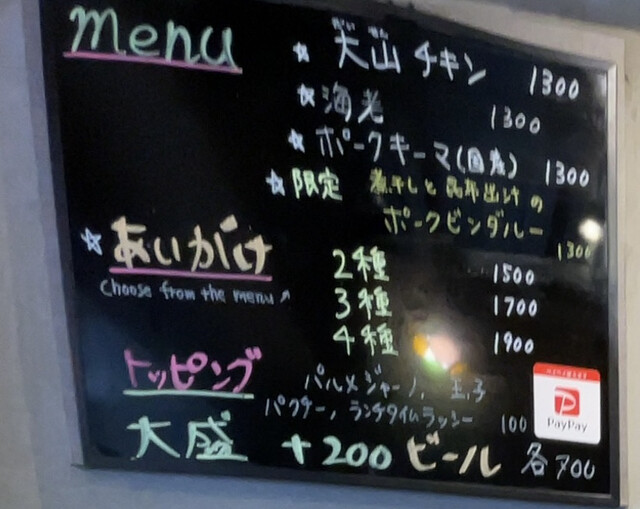 menu
☆ 大山チキン 1300
だい せん
☆ 海老 1300
☆ ポークキーマ(国産) 1300
☆ 限定 煮干しと昆布出汁の
ポークビンダルー
1300
☆ あいがけ 2種 1500
Choose from the menu ↗ 3種 1700
4種 1900
トッピング パルメジャーノ、玉子
パクチー、ランチタイムラッシー 100
大盛 +200 ビール 各700
PayPay